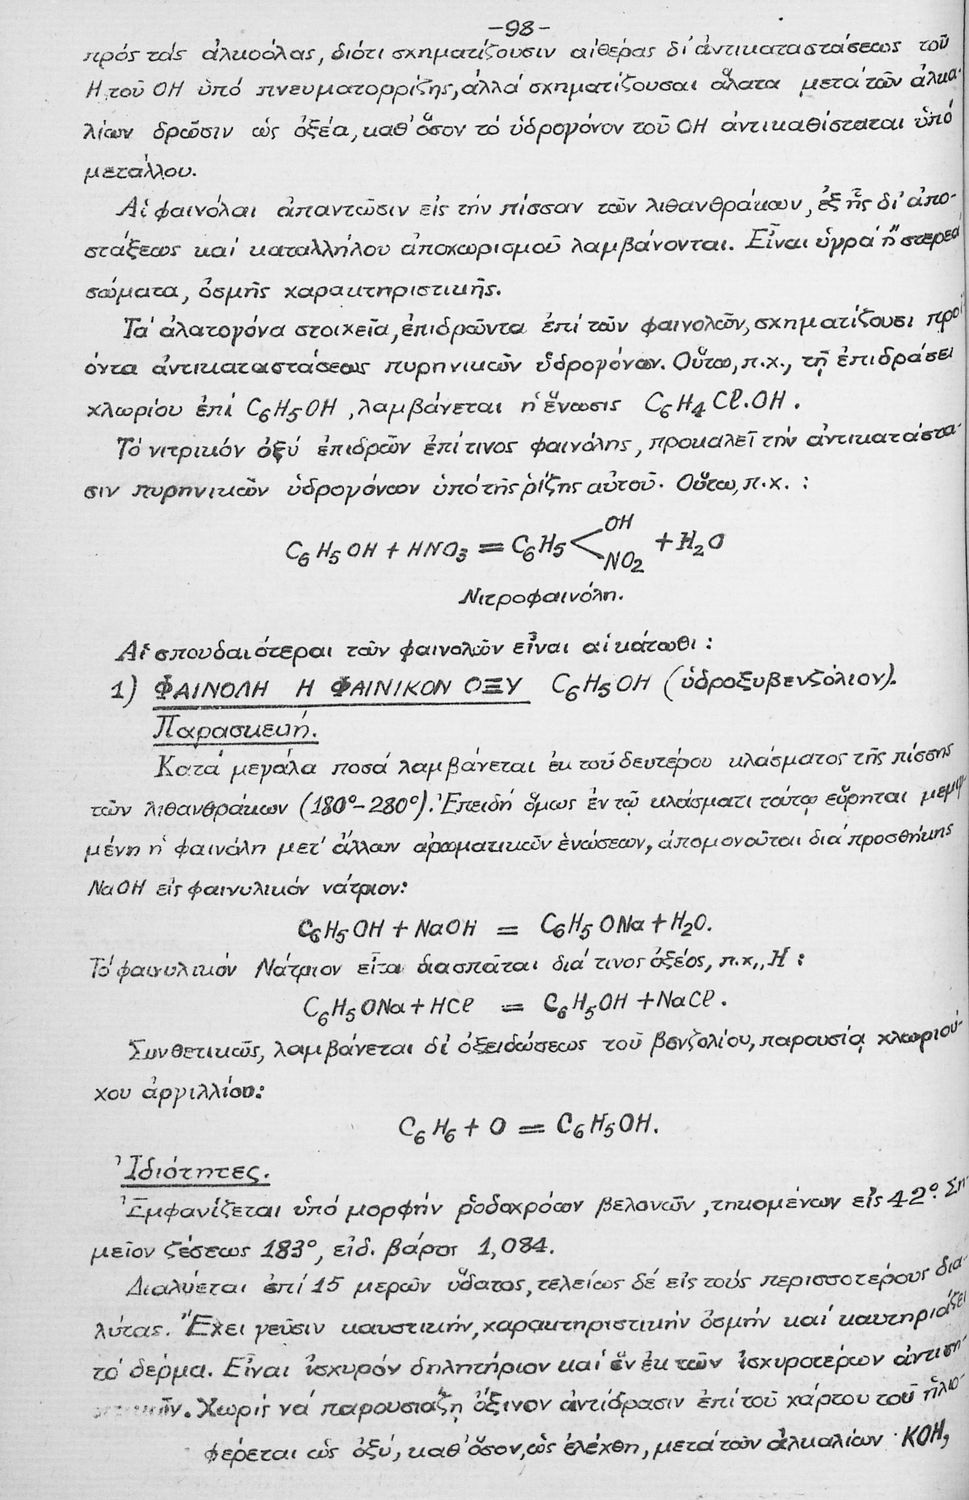 -98-
πρός τάς ἀλκοόλας, διότι σχηματίζουσιν αἰθέρας δι' ἀντικαταστάσεως τοῦ
Η τοῦ ΟΗ ὑπό πνευματορρίζης, ἀλλά σχηματίζουσαι ἅλατα μετά τῶν ἀλκα-
λίων δρῶσιν ὡς ὀξέα, καθ' ὅσον τό ὑδρογόνον τοῦ ΟΗ ἀντικαθίσταται ὑπό
μετάλλου.
Αἱ φαινόλαι ἀπαντῶσιν εἰς τήν πίσσαν τῶν λιθανθράκων, ἐξ ἧς δι' ἀπο-
στάξεως καί καταλλήλου ἀποχωρισμοῦ λαμβάνονται. Εἶναι ὑγρά ἤ στερεά
σώματα, ὀσμῆς χαρακτηριστικῆς.
Τά ἀλατογόνα στοιχεῖα, ἐπιδρῶντα ἐπί τῶν φαινολῶν, σχηματίζουσι προϊ
όντα ἀντικαταστάσεως πυρηνικῶν ὑδρογόνων. Οὕτω, π.χ., τῇ ἐπιδράσει
χλωρίου ἐπί C6H5OH, λαμβάνεται ἡ ἕνωσις C6H4Cl.OH.
Τό νιτρικόν ὀξύ ἐπιδρῶν ἐπί τινος φαινόλης, προκαλεῖ τήν ἀντικατάστα-
σιν πυρηνικῶν ὑδρογόνων ὑπό τῆς ρίζης αὐτοῦ. Οὕτω, π.χ. :
C6H5OH + HNO3 = C6H5<OH NO2 + H2O
Νιτροφαινόλη.
Αἱ σπουδαιότεραι τῶν φαινολῶν εἶναι αἱ κάτωθι :
1) ΦΑΙΝΟΛΗ Η ΦΑΙΝΙΚΟΝ ΟΞΥ C6H5OH (ὑδροξυβενζόλιον).
Παρασκευή.
Κατά μεγάλα ποσά λαμβάνεται ἐκ τοῦ δευτέρου κλάσματος τῆς πίσσης
τῶν λιθανθράκων (180°-280°). Ἐπειδή ὅμως ἐν τῷ κλάσματι τούτῳ εὕρηται μεμιγ-
μένη ἡ φαινόλη μετ' ἄλλων ἀρωματικῶν ἑνώσεων, ἀπομονοῦται διά προσθήκης
NaOH εἰς φαινυλικόν νάτριον:
C6H5OH + NaOH = C6H5ONa + H2O.
Τό φαινυλικόν Νάτριον εἶτα διασπᾶται διά τινος ὀξέος, π.χ,, Η :
C6H5ONa + HCl = C6H5OH + NaCl.
Συνθετικῶς, λαμβάνεται δι' ὀξειδώσεως τοῦ βενζολίου, παρουσίᾳ χλωριού-
χου ἀργιλλίου:
C6H6 + O = C6H5OH.
Ἰδιότητες.
Ἐμφανίζεται ὑπό μορφήν ῥοδοχρόων βελονῶν, τηκομένων εἰς 42°. Ση-
μεῖον ζέσεως 183°, εἰδ. βάρος 1,084.
Διαλύεται ἐπί 15 μερῶν ὕδατος, τελείως δέ εἰς τούς περισσοτέρους δια-
λύτας. Ἔχει γεῦσιν καυστικήν, χαρακτηριστικήν ὀσμήν καί καυτηριάζει
τό δέρμα. Εἶναι ἰσχυρόν δηλητήριον καί ἕν ἐκ τῶν ἰσχυροτέρων ἀντιση-
πτικῶν. Χωρίς νά παρουσιάζῃ ὄξινον ἀντίδρασιν ἐπί τοῦ χάρτου τοῦ ἡλιο-
φέρεται ὡς ὀξύ, καθ' ὅσον, ὡς ἐλέχθη, μετά τῶν ἀλκαλίων KOH,